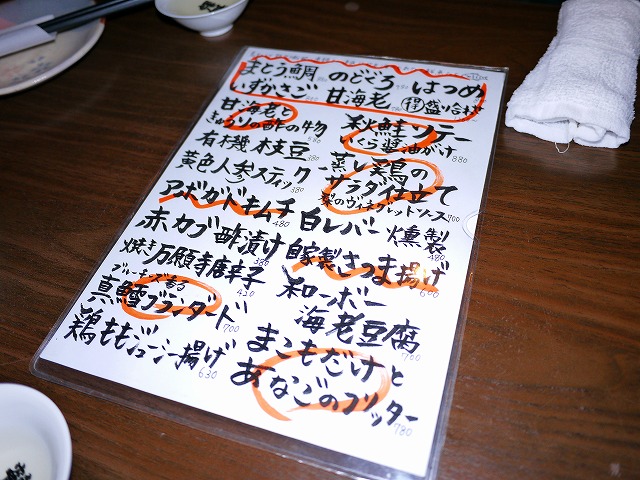 まとう鯛 のどぐろ はつめ
いずかさご 甘海老 得盛り合わせ
甘海老と
きゅうりの酢の物
580
有機枝豆 380
黄色人参スティック 380
アボガドキムチ 480
赤カブ酢漬け 380
焼き万願寺唐辛子 420
ブルーチーズ香る
真鱈ブランダード 700
鶏ももジューシー揚げ 630
秋鮭ソテー
いくら醤油がけ 880
蒸し鶏の
サラダ仕立て
梨のヴィネグレットソース 700
白レバー燻製 480
自家製さつま揚げ 600
和一ボー
海老豆腐 700
まこもだけと
あなごのフリッター 780